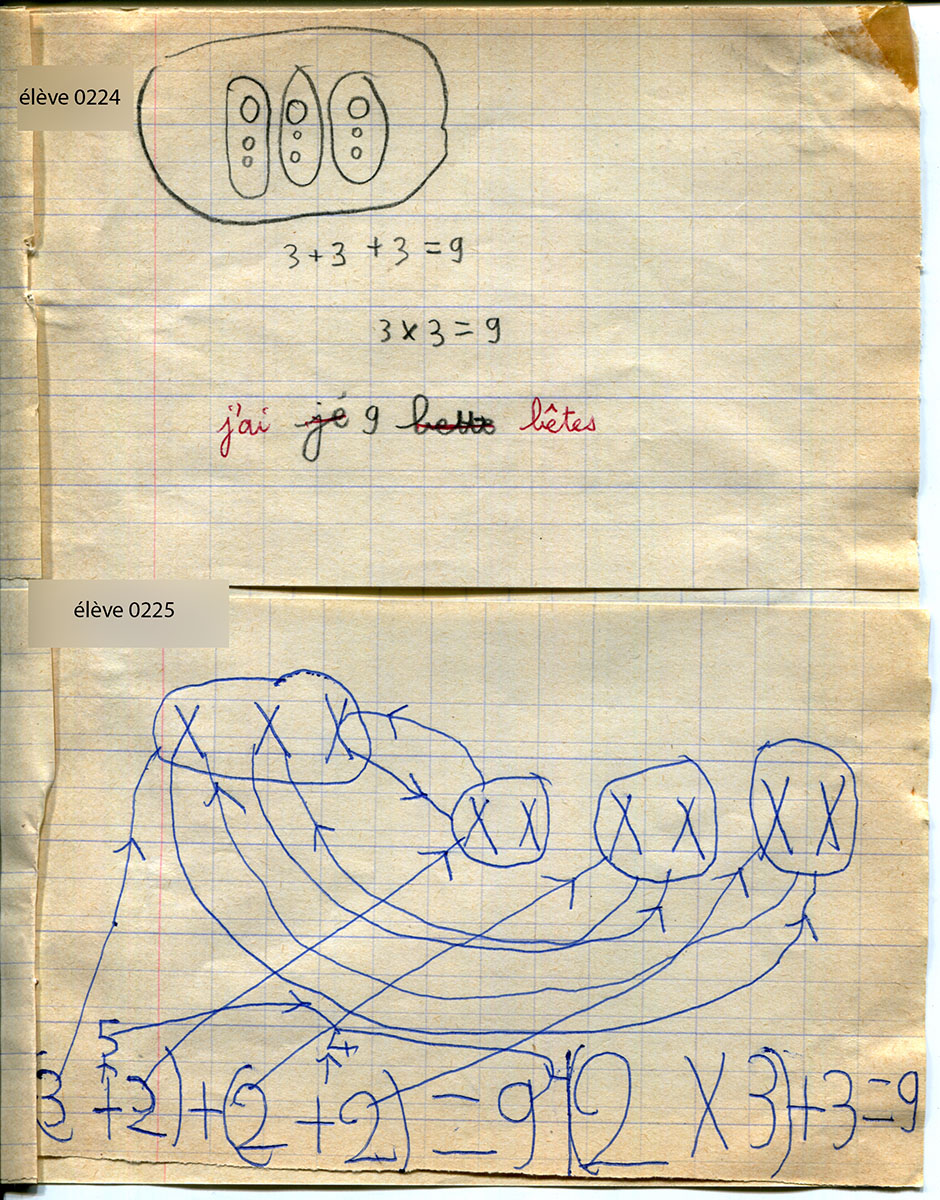 élève 0224
3 + 3 + 3 = 9
3 x 3 = 9
j'ai jé 9 bêtes
élève 0225
X X X
X X X X X X
5 4
(3 + 2) + (2 + 2) = 9 (2 X 3) + 3 = 9